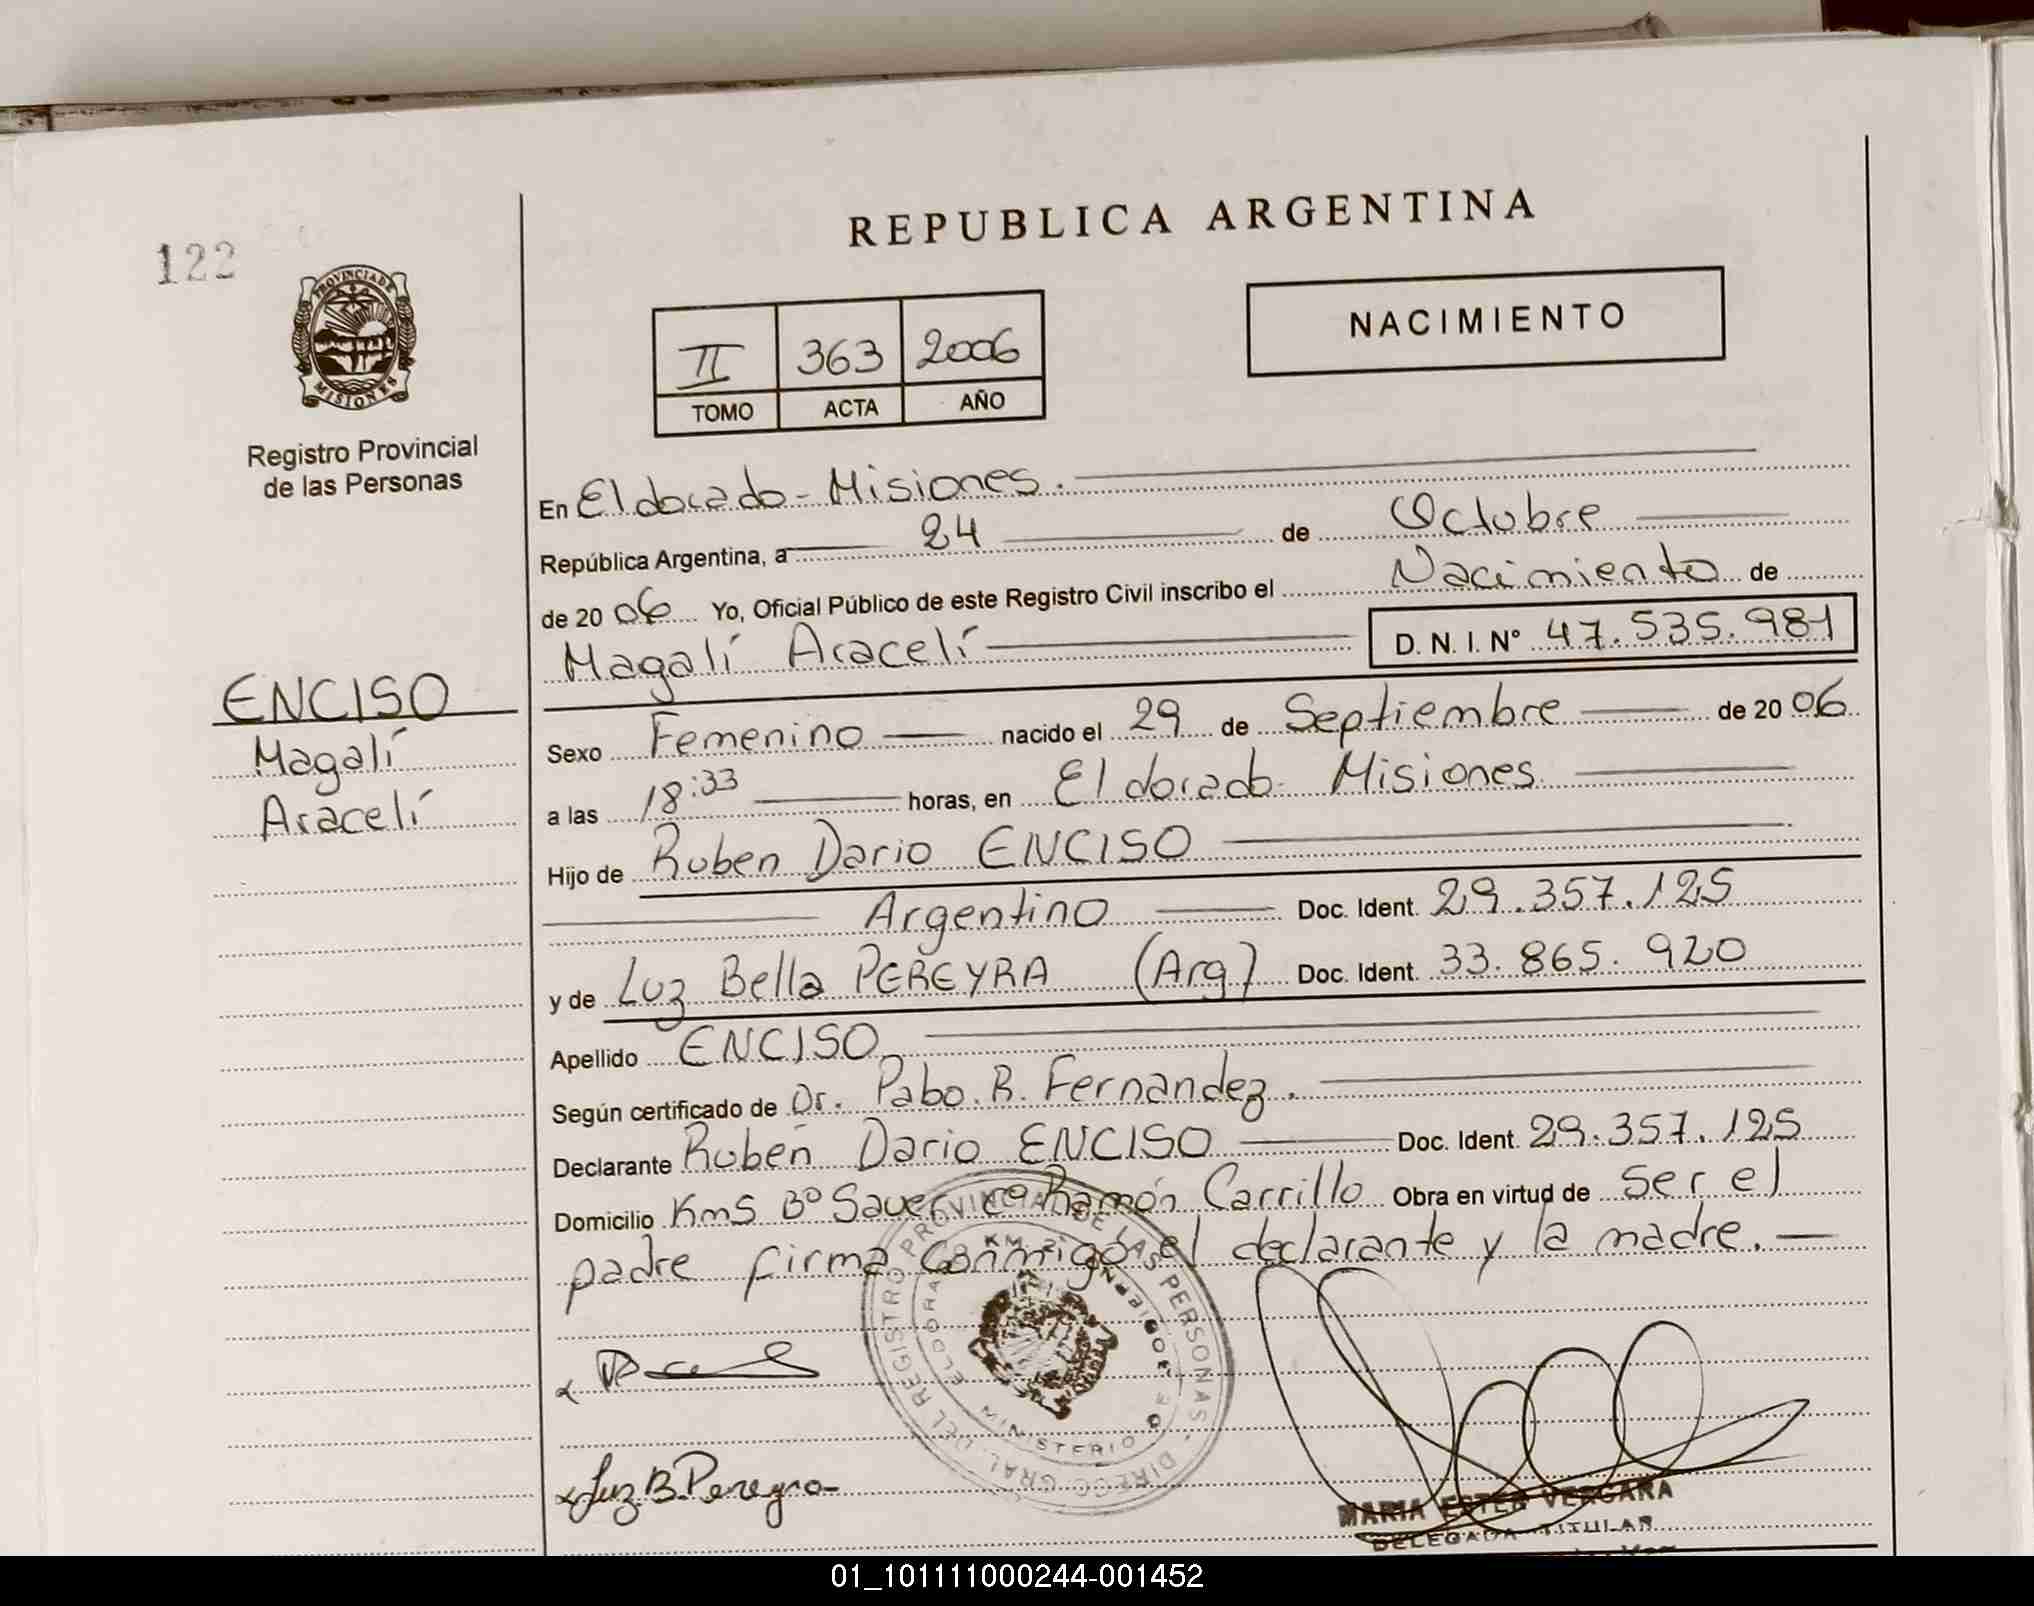 122
REPUBLICA ARGENTINA
PROVINCIA DE
MISIONES
Registro Provincial
de las Personas
II 363 2006
TOMO ACTA AÑO
NACIMIENTO
En Eldorado - Misiones.
República Argentina, a 24 de Octubre
de 2006 Yo, Oficial Público de este Registro Civil inscribo el Nacimiento de
Magalí Aracelí D. N. I. N° 47.535.981
ENCISO
Magalí
Aracelí
Sexo Femenino nacido el 29 de Septiembre de 2006
a las 18:33 horas, en Eldorado - Misiones.
Hijo de Ruben Dario ENCISO
Argentino Doc. Ident. 29.357.125
y de Luz Bella PEREYRA (Arg) Doc. Ident. 33.865.920
Apellido ENCISO
Según certificado de Dr. Pabo. R. Fernandez.
Declarante Ruben Dario ENCISO Doc. Ident. 29.357.125
Domicilio Km5 Bº Ramón Carrillo Obra en virtud de ser el
padre firma conmigo el declarante y la madre.
DIREC. GRAL. DEL REGISTRO PROVINCIAL DE LAS PERSONAS
MINISTERIO DE GOBIERNO
Luz B. Pereyra
MARIA ESTER VERGARA
DELEGADA TITULAR
01_101111000244-001452